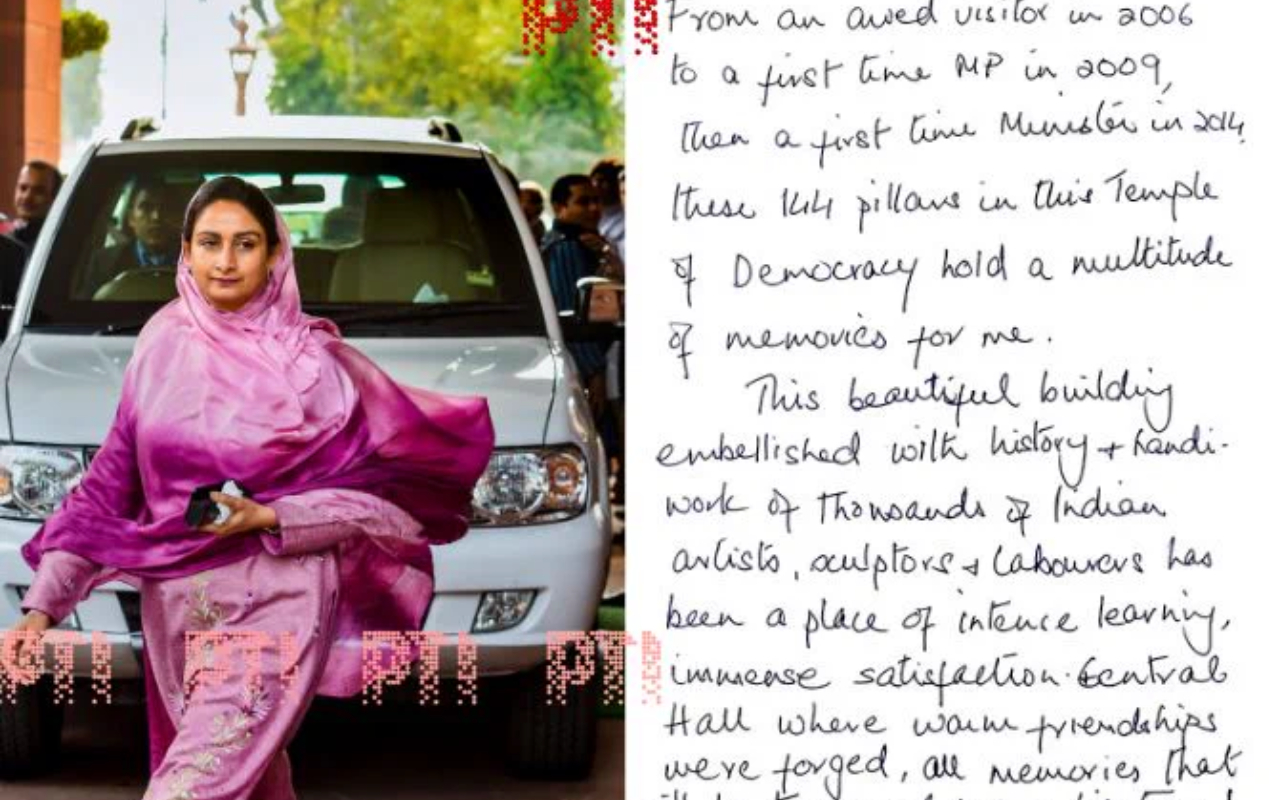 PTI
From an awed visitor in 2006
to a first time MP in 2009,
then a first time Minister in 2014,
these 144 pillars in this Temple
of Democracy hold a multitude
of memories for me.
This beautiful building
embellished with history + handi-
work of thousands of Indian
artists, sculptors & Labourers has
been a place of intence learning,
immense satisfaction. Central
Hall where warm friendships
were forged, all memories that
PTI PTI PTI PTI